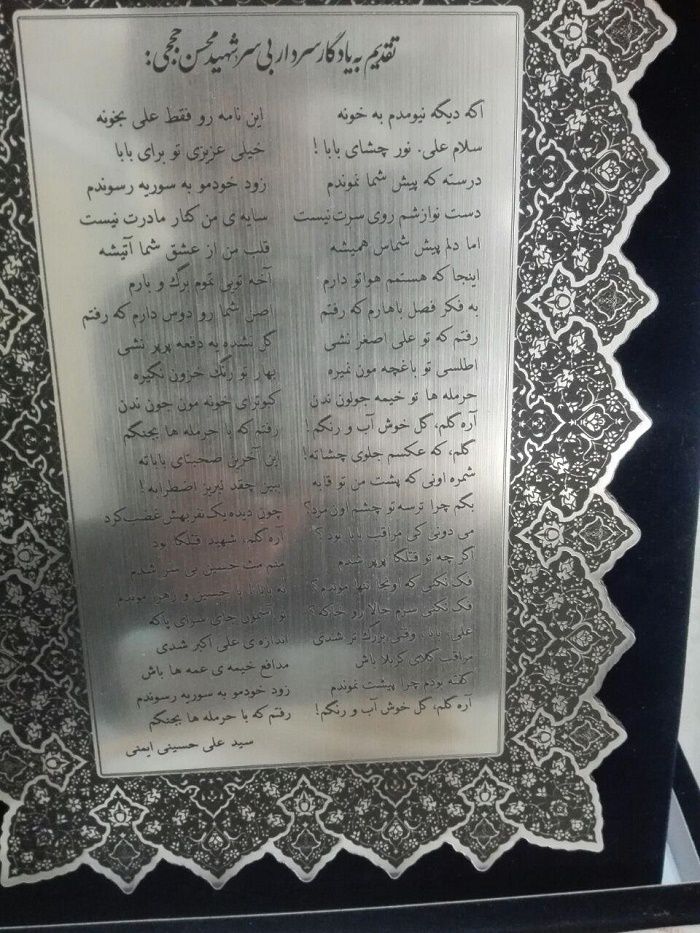 تقدیم به یادگار سردار بی سر شهید محسن حججی:
اگه دیگه نیومدم به خونه این نامه رو فقط علی بخونه
سلام علی. نور چشای بابا ! خیلی عزیزی تو برای بابا
درسته که پیش شما نموندم زود خودمو به سوریه رسوندم
دست نوازشم روی سرت نیست سایه ی من کنار مادرت نیست
اما دلم پیش شماس همیشه قلب من از عشق شما آتیشه
اینجا که هستم هواتو دارم آخه تویی تموم برگ و بارم
به فکر فصل باهارم که رفتم اصن شما رو دوس دارم که رفتم
رفتم که تو علی اصغر نشی گل نشده یه دفعه پرپر نشی
اطلسی تو باغچه مون نمیره بهار تو رنگ خزون نگیره
حرمله ها تو خیمه جولون ندن کبوترای خونه مون جون ندن
آره گلم، گل خوش آب و رنگم! رفتم که با حرمله ها بجنگم
گلم، که عکسم جلوی چشاته! این آخرین صحبتای باباته
شمره اونی که پشت من تو قابه ببین چقد لبریز اضطرابه !
بگم چرا ترسه تو چشم اون مرد؟ چون دیده یک نفر بهش غضب کرد
می دونی کی مراقب بابا بود ؟ آره گلم، شهید قتلگا بود
اگر چه تو قتلگا پرپر شدم منم مث حسین بی سر شدم
فک نکنی که اونجا تنها موندم؟ نه بابا با حسین و زهرا موندم
فک نکنی سرم حالا رو خاکه؟ تو آسمون جای سرای پاکه
علی، بابا، وقتی بزرگ تر شدی اندازه ی علی اکبر شدی
مراقب کربلا باش مدافع خیمه ی عمه ها باش
نگفته بودم چرا پیشت نموندم زود خودمو به سوریه رسوندم
آره گلم، گل خوش آب و رنگم! رفتم که با حرمله ها بجنگم
سید علی حسینی ایمنی